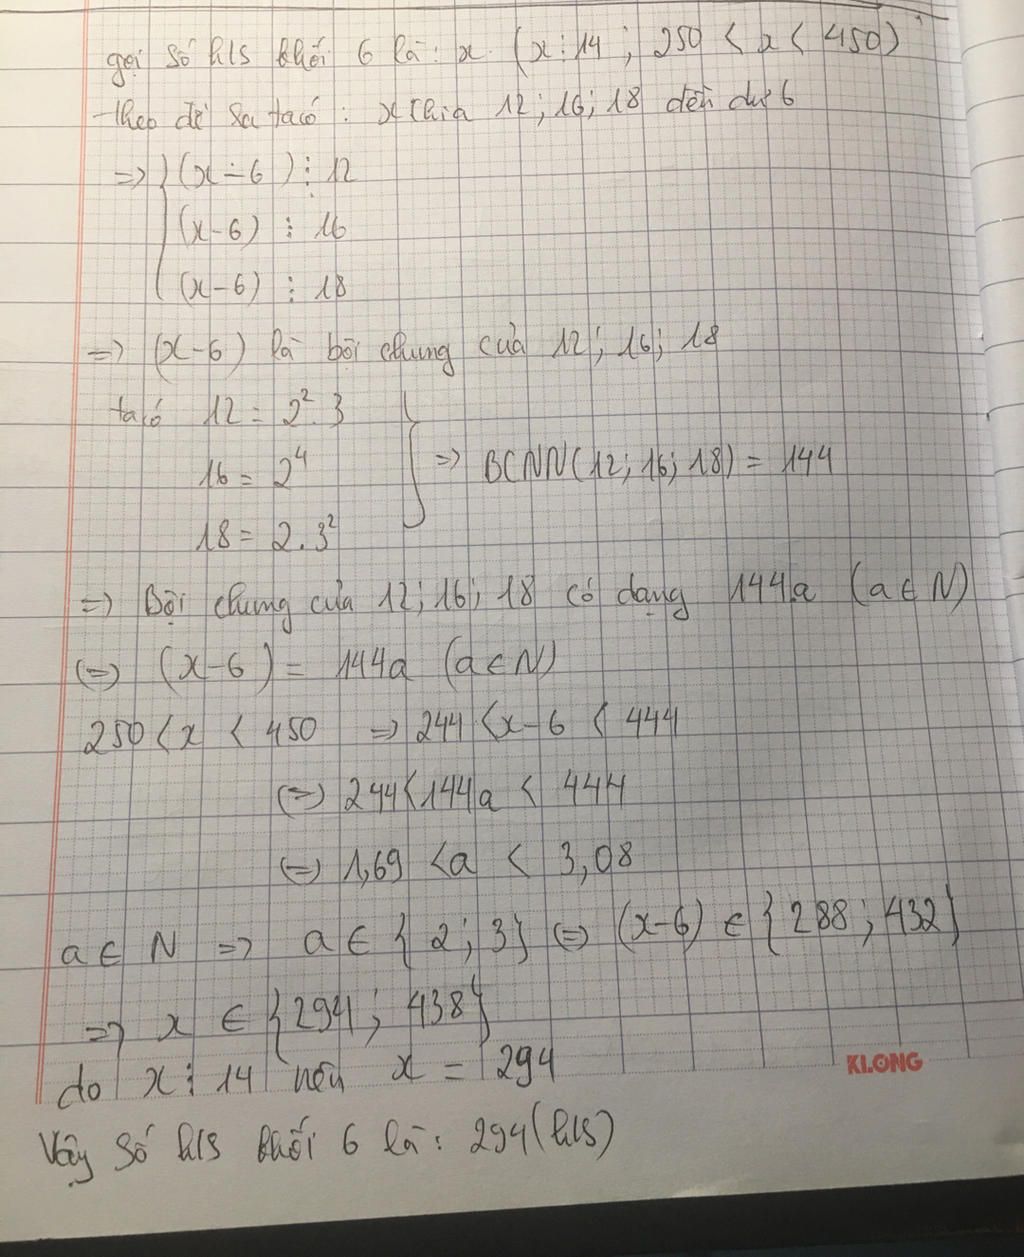 gọi số hls khối 6 là: x (x ⋮ 14 ; 250 < x < 450)
theo đề ra ta có : x chia 12 ; 16 ; 18 đều dư 6
=> { (x - 6) ⋮ 12
(x - 6) ⋮ 16
(x - 6) ⋮ 18
=> (x - 6) là bội chung của 12 ; 16 ; 18
ta có 12 = 2².3
16 = 2⁴ } => BCNN(12 ; 16 ; 18) = 144
18 = 2.3²
=> Bội chung của 12 ; 16 ; 18 có dạng 144a (a ∈ N)
(=) (x - 6) = 144a (a ∈ N)
250 < x < 450 => 244 < x - 6 < 444
(=) 244 < 144a < 444
(=) 1,69 < a < 3,08
a ∈ N => a ∈ { 2 ; 3 } (=) (x - 6) ∈ { 288 ; 432 }
=> x ∈ { 294 ; 438 }
KLONG
do x ⋮ 14 nên x = 294
Vậy số hls khối 6 là : 294 (hls)